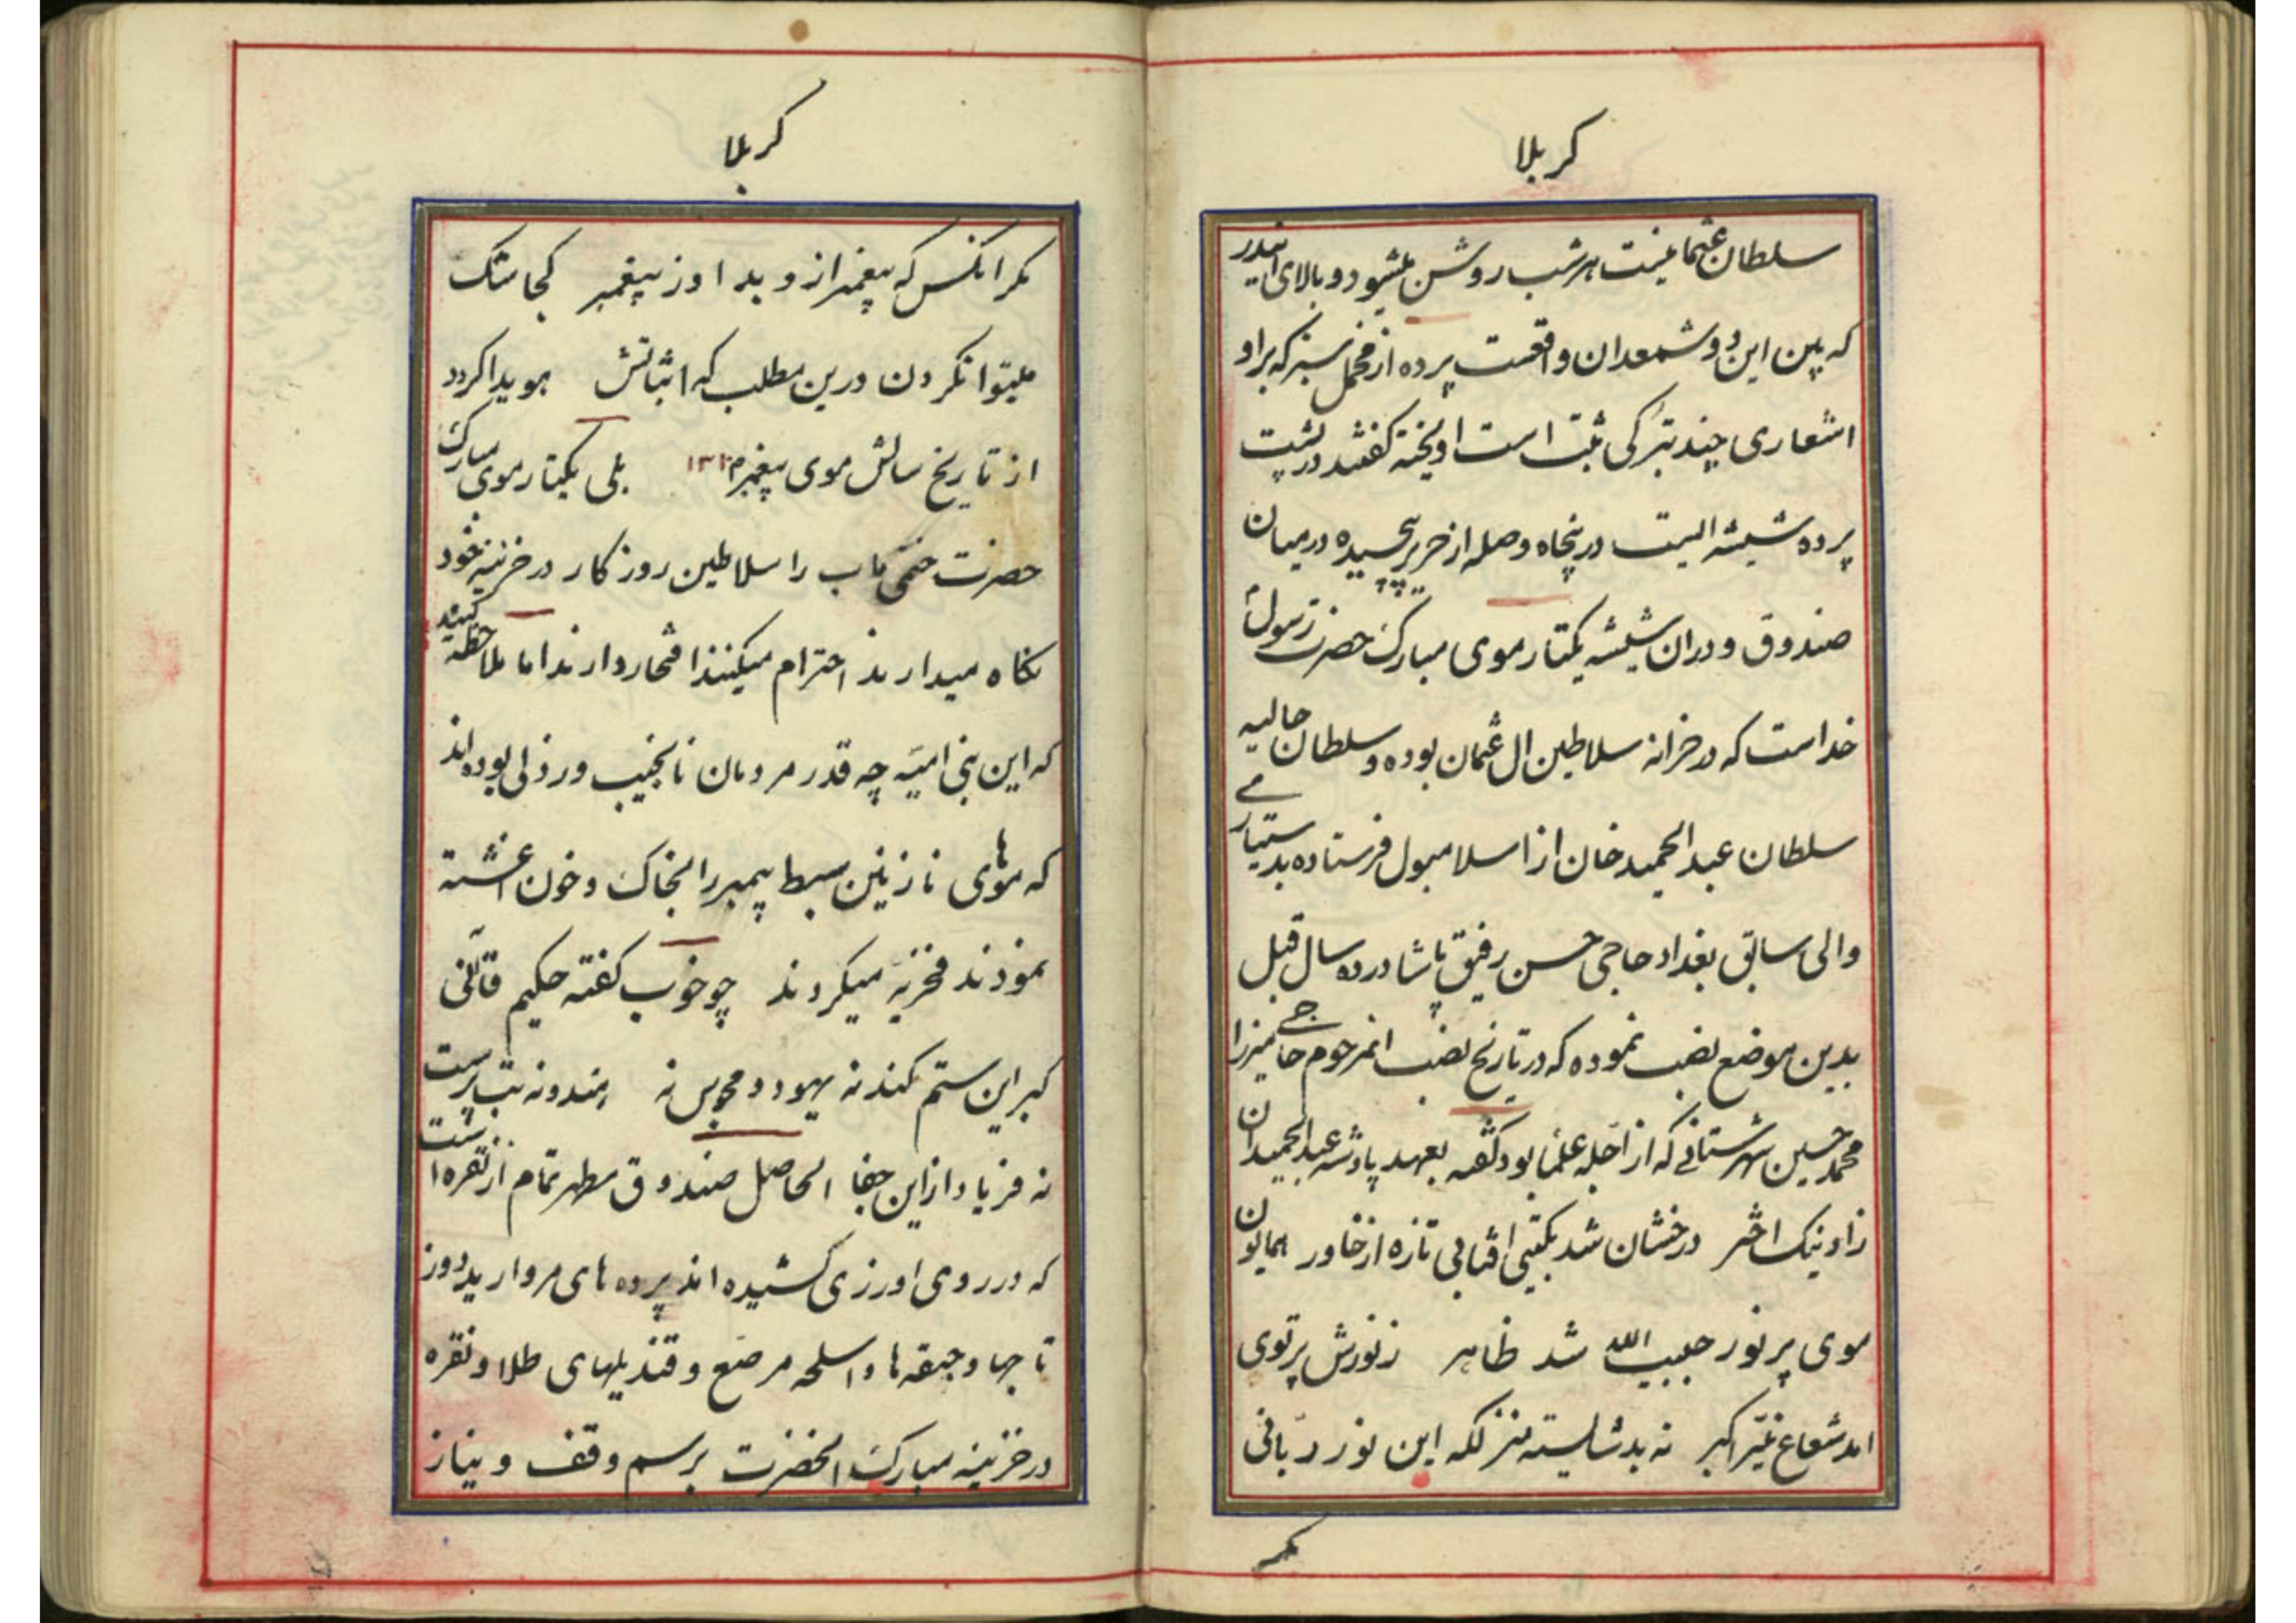 کربلا
سلطان عثمانیست هر شب روشن میشود و بالای
که بین این دو شمعدان واقعست پرده از مخمل سبز که بر او
اشعاری چند بترکی ثبت است اویخته کفتند در پشت
پرده شیشه ایست در پنجاه وصله از حریر پیچیده در میان
صندوق و در ان شیشه یکتار موی مبارک حضرت رسول
خداست که در خزانه سلاطین ال عثمان بوده و سلطان حالیه
سلطان عبدالحمید خان از اسلامبول فرستاده بدستیاری
والی سابق بغداد حاجی حسن رفیق پاشا در ده سال قبل
بدین موضع نصب نموده که در تاریخ نصب انمرحوم حاجی میرزا
محمد حسین شهرستانی که از اجله علما بود کفته بعهد پادشه عبدالحمید ان
زاد نیک اختر درخشان شد بکیتی افتابی تازه از خاور همایون
موی پر نور حبیب الله شد ظاهر ز نورش پرتوی
امد شعاع نیر اکبر نه بد شایسته منزلکه این نور ربانی
مکر
کربلا
مکر انکس که پیغمبر از و بد او ز پیغمبر کجا شک
میتوان کردن درین مطلب که اثباتش هویدا کردد
از تاریخ سالش موی پیغمبر بلی یکتار موی مبارک
حضرت ختمی ماب را سلاطین روزکار در خزینه خود
نکاه میدارند احترام میکنند افتخار دارند اما ملاحظه کنید
که این بنی امیه چه قدر مردمان نانجیب و رذلی بوده اند
که موهای نازنین سبط پیمبر را بخاک و خون اغشته
نمودند فخریه میکردند چو خوب کفته حکیم قاآنی
کبر این ستم کند نه یهود و مجوس نه هندو نه بت پرست
نه فریاد از این جفا الحاصل صندوق مطهر تمام از نقره است
که در روی او زری کشیده اند پرده های مروارید دوز
تاجها و جیقه ها و اسلحه مرصع و قندیلهای طلا و نقره
در خزینه مبارک انحضرت برسم وقف و نیاز